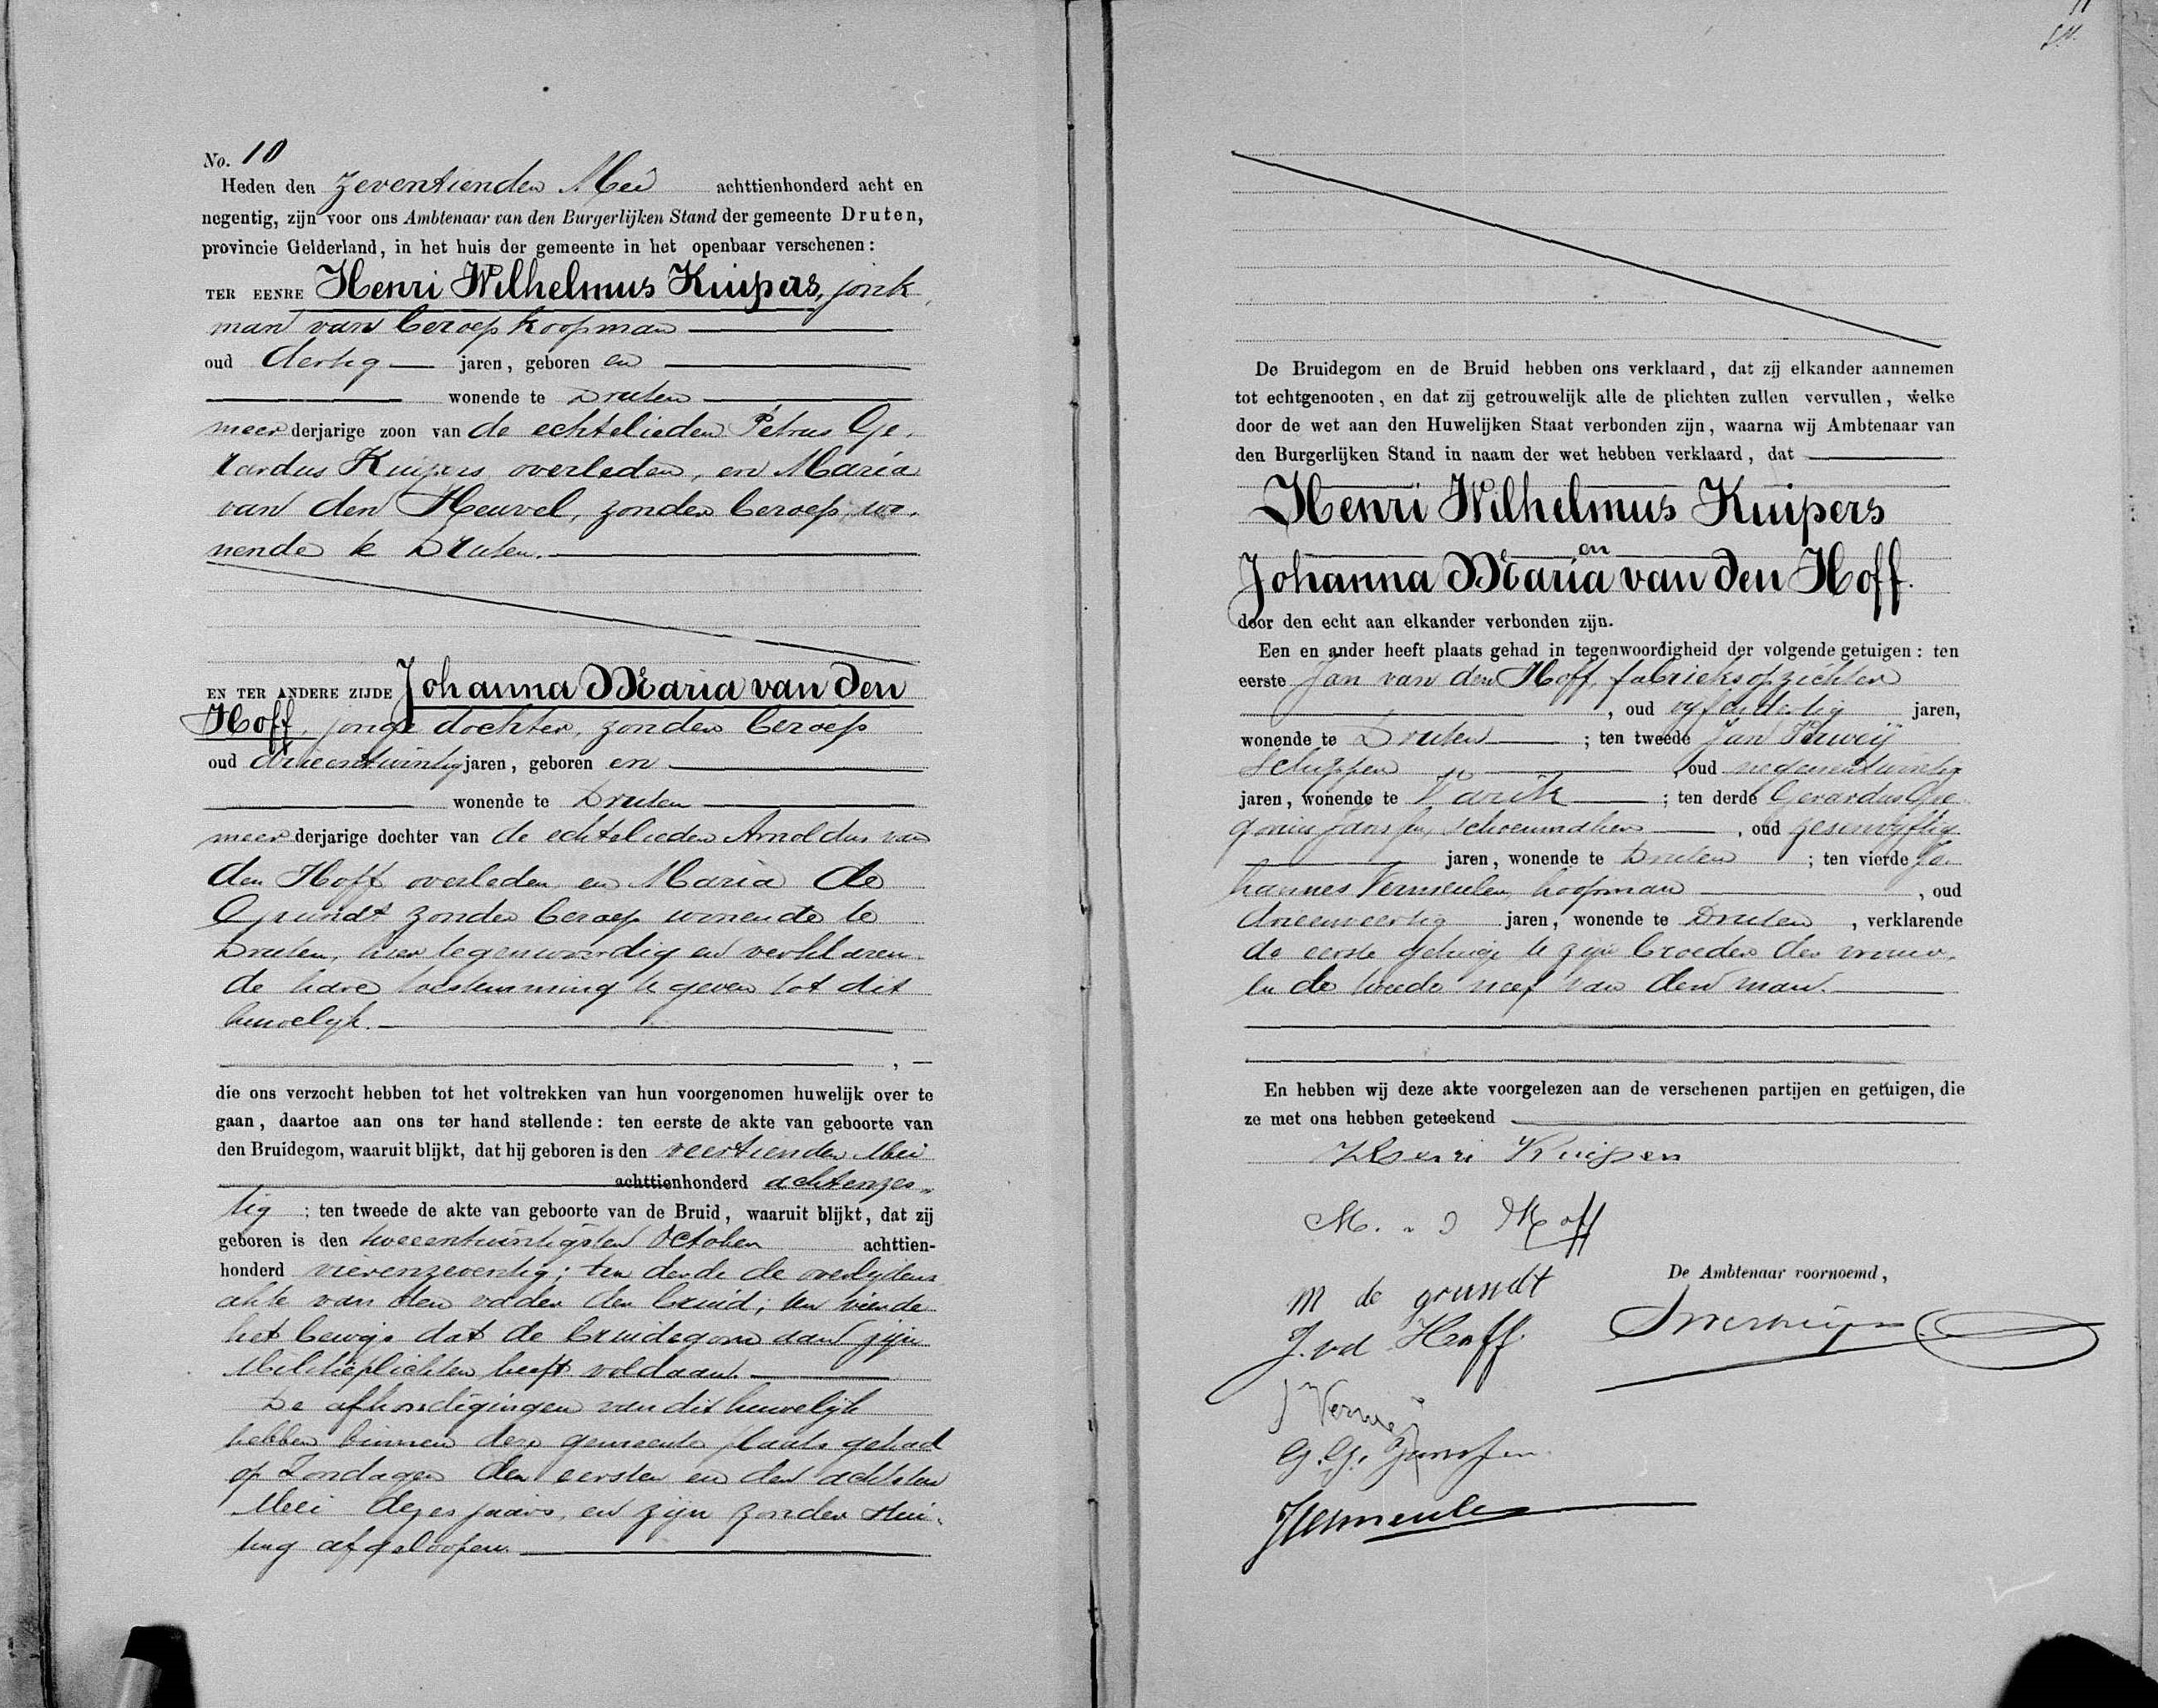 No. 10
Heden den zeventienden Mei achttienhonderd acht en
negentig, zijn voor ons Ambtenaar van den Burgerlijken Stand der gemeente Druten,
provincie Gelderland, in het huis der gemeente in het openbaar verschenen:
TER EENRE Henri Wilhelmus Kuipers, jonk
man van beroep koopman
oud dertig jaren, geboren en
wonende te Druten
meerderjarige zoon van de echtelieden Petrus Ge
rardus Kuipers, overleden, en Maria
van den Heuvel, zonder beroep, wo
nende te Druten.
EN TER ANDERE ZIJDE Johanna Maria van den
Hoff, jonge dochter, zonder beroep
oud drieentwintig jaren, geboren en
wonende te Druten
meerderjarige dochter van de echtelieden Arnoldus van
den Hoff overleden en Maria de
Grundt zonder beroep wonende te
Druten, hier tegenwoordig en verklaren
de hare toestemming te geven tot dit
huwelijk.
die ons verzocht hebben tot het voltrekken van hun voorgenomen huwelijk over te
gaan, daartoe aan ons ter hand stellende: ten eerste de akte van geboorte van
den Bruidegom, waaruit blijkt, dat hij geboren is den veertienden Mei
achttienhonderd achtenzes
tig ; ten tweede de akte van geboorte van de Bruid, waaruit blijkt, dat zij
geboren is den tweeentwintigsten October achttien-
honderd vierenzeventig; ten derde de overlijdens
akte van den vader der bruid; ten vierde
het bewijs dat de bruidegom aan zijn
Militieplichten heeft voldaan.
De afkondigingen van dit huwelijk
hebben binnen deze gemeente plaats gehad
op Zondagen den eersten en den achtsten
Mei dezes jaars, en zijn zonder stui
ting afgeloopen.
De Bruidegom en de Bruid hebben ons verklaard, dat zij elkander aannemen
tot echtgenooten, en dat zij getrouwelijk alle de plichten zullen vervullen, welke
door de wet aan den Huwelijken Staat verbonden zijn, waarna wij Ambtenaar van
den Burgerlijken Stand in naam der wet hebben verklaard, dat
Henri Wilhelmus Kuipers
en
Johanna Maria van den Hoff.
door den echt aan elkander verbonden zijn.
Een en ander heeft plaats gehad in tegenwoordigheid der volgende getuigen: ten
eerste Jan van den Hoff, fabrieksopzichter
, oud vyfendertig jaren,
wonende te Druten ; ten tweede Jan Verweij
Schipper , oud negenentwintig
jaren, wonende te Varik ; ten derde Gerardus Gre
gorius Janssen, schoenmaker , oud zesenvyftig
jaren, wonende te Druten ; ten vierde Jo
hannes Vermeulen, koopman , oud
drieenveertig jaren, wonende te Druten , verklarende
de eerste getuige te zijn broeder der vrouw,
en de tweede neef van den man.
En hebben wij deze akte voorgelezen aan de verschenen partijen en getuigen, die
ze met ons hebben geteekend
Henri Kuipers
M. v d Hoff
De Ambtenaar voornoemd,
M de grundt
J. vd Hoff.
J Verweij
G. G. Janssen
JVermeulen